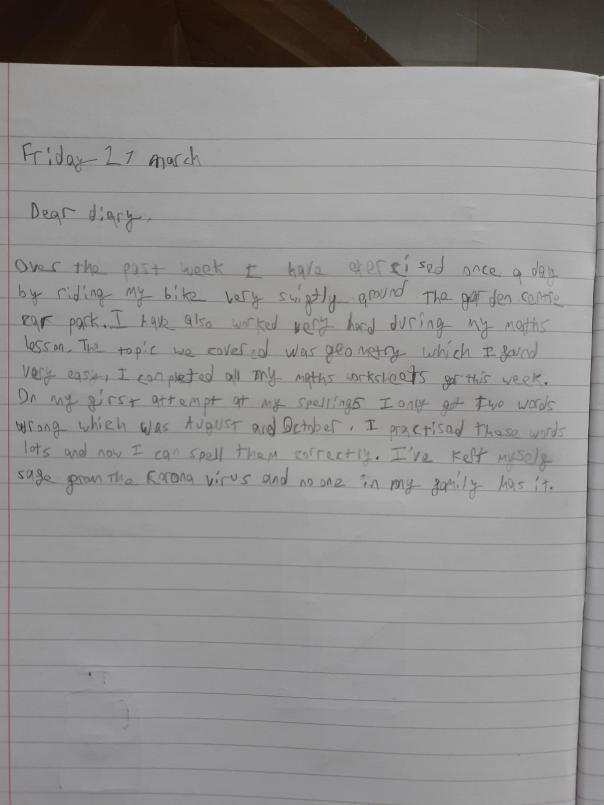 Friday 27 march
Dear diary,
Over the past week I have exercised once a day
by riding my bike very swiftly around The garden centre
car park. I have also worked very hard during my maths
lesson. The topic we covered was geometry which I found
very easy, I completed all my maths worksheets for this week.
On my first attempt at my spellings I only got two words
wrong which was August and October. I practised those words
lots and now I can spell them correctly. I've kept myself
safe from the Korona virus and no one in my family has it.